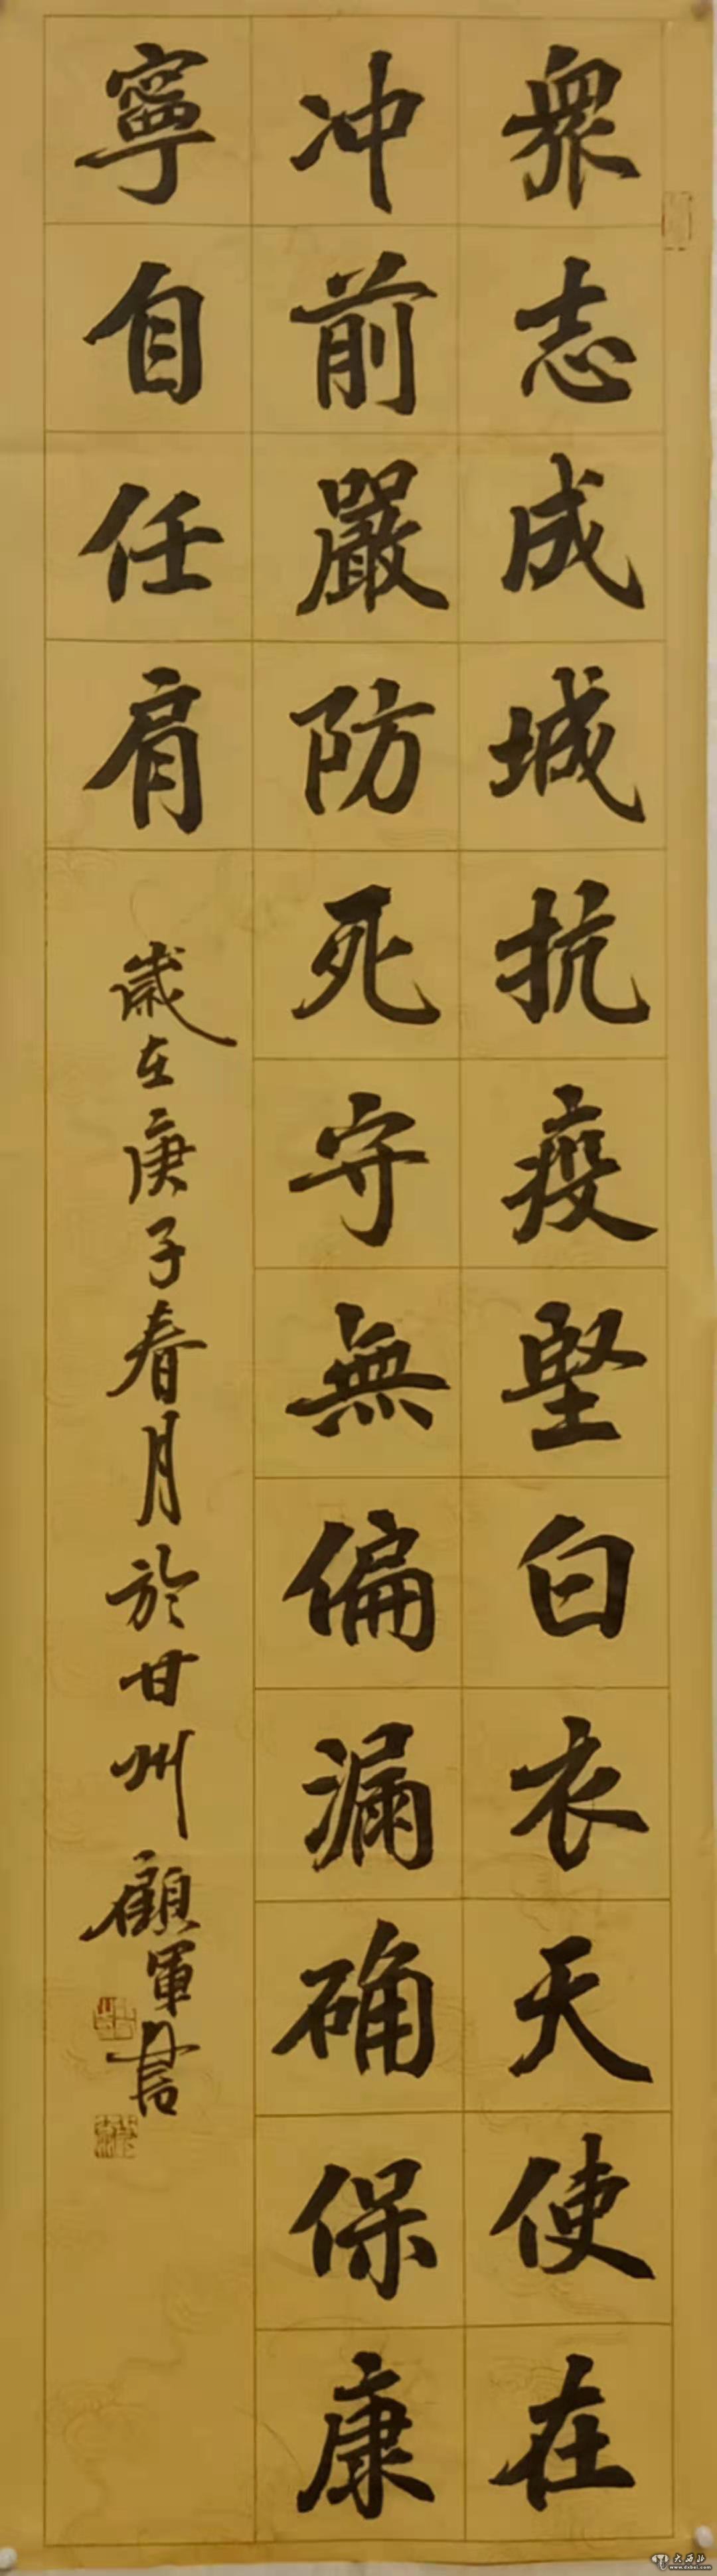 眾志成城抗疫堅白衣天使在
冲前嚴防死守無偏漏确保康
寧自任肩
歲在庚子春月於甘州顧軍書
大西北
www.dxbei.com